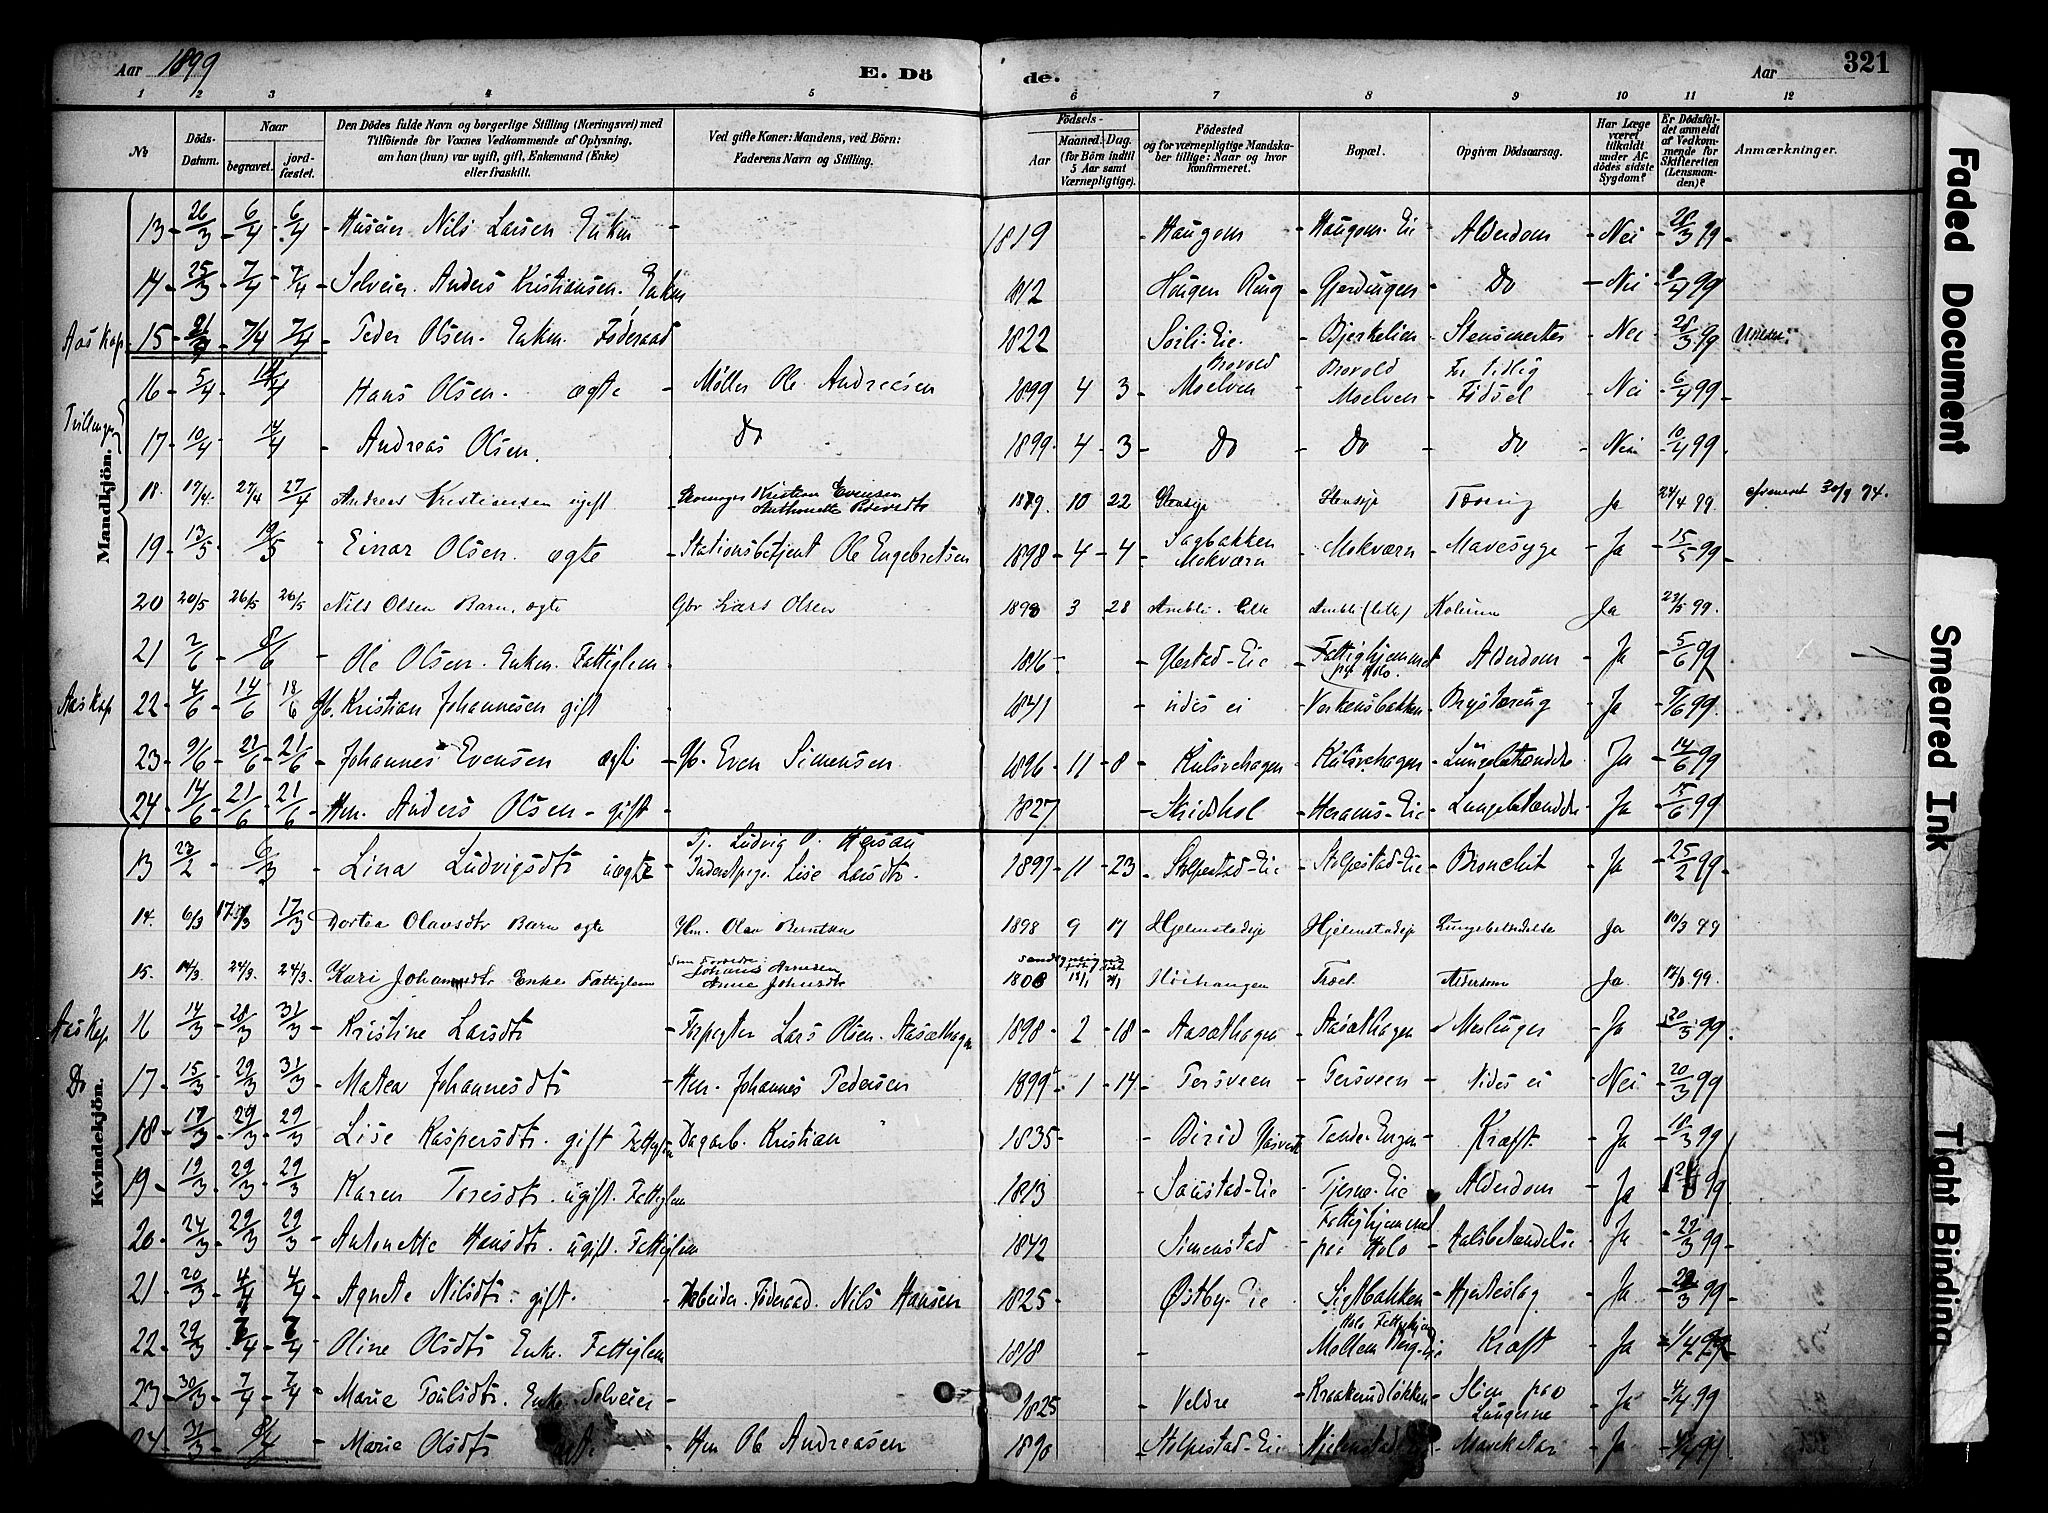 Aar 1899 E. Dö de. Aar 321
1 2 3 4 5 6 7 8 9 10 11 12
No Döds-Datum. Naar begravet. jordfæstet. Den Dödes fulde Navn og borgerlige Stilling (Næringsvei) med Tilföiende for Voxnes Vedkommende af Oplysning, om han (hun) var ugift, gift, Enkemand (Enke) eller fraskilt. Ved gifte Koner: Mandens, ved Börn: Faderens Navn og Stilling. Födsels- Aar Maaned. Dag. (for Börn indtil 5 Aar samt Værnepligtige). Födested og for værnepligtige Mandskaber tillige: Naar og hvor konfirmeret. Bopæl. Opgiven Dödsaarsag. Har Læge været tilkaldt under Afdödes sidste Sygdom? Er Dödsfaldet anmeldt af Vedkommende for Skifteretten (Lensmanden)? Anmærkninger.
Mandkjön.
13 26/3 6/4 6/4 Huseier Nils Larsen Enkm 1819 Haugom Haugom-Eie Alderdom Nei 28/3 99
14 25/3 7/4 7/4 Selveier Anders Kristiansen. Enkm 1812 Haugen Ring Gjerdingen Do Nei 8/4 99
Aas Kap 15 7/4 7/4 Peder Olsen. Enkm. Föderaad 1822 Sörli-Eie Bjerkelien Stensmerter Nei 28/3 99
Tvillinger 16 5/4 14/4 Hans Olsen. ægte Møller Ole Andreasen 1899 4 3 Brovold Moelven Brovold Moelven For tidlig Födsel Nei 6/4 99
17 10/4 14/4 Andreas Olsen. Do 1899 4 3 Do Do Do Nei 10/4 99
18. 17/4 27/4 27/4 Andreas Kristiansen ugift Kristian Evensen 1879 10 22 Stenseje Stensje Tæring Ja 24/4 99.
19 13/5 19/5 Einar Olsen. ægte Stationsbetjent Ole Engebretsen 1898 4 4 Sagbakken Mokværn Mokværn Mavesyge Ja 15/5 99
20 20/5 26/5 26/5 Nils Olsen Barn, ægte Gbr Lars Olsen 1898 3 28 Ambli. lille Ambli (lille) Kolerine Ja 23/5 99.
21 2/6 8/6 Ole Olsen. Enkm. Fattiglem 1816 Glestad-Eie Fattighjemmet på Holo Alderdom Ja 5/6 99
Aas Kap 22 4/6 14/6 18/6 Gb. Kristian Johannesen gift 1841 vides ei Verkensbakken Brysttæring Ja 9/6 99
23 9/6 21/6 21/6 Johannes Evensen ægte Gb. Even Simensen 1896 11 8 Kulsvehagen Kulsvehagen Lungebetændelse Ja 14/6 99
24 14/6 21/6 21/6 Hm. Anders Olsen gift 1827 Skridshol Herams-Eie Lungebetændelse Ja 15/6 99
Kvindekjön.
13 23/2 6/3 Lina Ludvigsdtr uægte Tj. Ludvig O. Inderstpige Lise Larsdtr. 1897 11 23 Stolpestad-Eie Stolpestad-Eie Bronchit Ja 25/2 99
14. 6/3 17/3 17/3 Dortea Olavsdtr Barn ægte Hm. Olav Berntsen 1898 9 17 Hjelmstadeje Hjelmstadeje Lungebetændelse Ja 10/3 99
15. 14/3 24/3. 24/3. Kari Enke Fattiglem 1808 Alderdom Ja. 17/3 99.
Aas Kap 16 14/3 28/3 31/3 Kristine Larsdtr Forpagter Lars Olsen. Aasæthagen 1898 2 18 Aasæthagen Aasæthagen Meslinger Ja 20/3 99.
Do 17 15/3 29/3 31/3 Matea Johannesdtr Hm. Johannes Pedersen 1899 1 14 Tersveen Tersveen Vides ei Nei 20/3 99
18 17/3 29/3 29/3 Lise Kaspersdtr. gift Fattiglem Dagarb. Kristian 1835 Birid Kræft Ja 18/3 99
19 19/3 29/3 29/3 Karen Toresdtr. ugift. Fattiglem 1813 Saustad-Eie Tjerne-Eie Alderdom Ja 99
20 24/3 29/3 29/3 Antonette Hansdtr. ugift. Fattiglem 1842 Simenstad Fattighjemmet paa Holo Halsbetændelse Ja 29/3 99
21 20/3 4/4 4/4 Agnete Nilsdtr. gift. Arbeider Föderaad. Nils Hansen 1825 Østby-Eie Sigtbakken Hjerteslag Ja 99
22 29/3 7/4 7/4 Oline Olsdtr Enke. Fattiglem 1818 Holo Fattighjem Kræft Ja 1/4 99
23 30/3 7/4 7/4 Marie Poulsdtr. Enke Selveier 1825 Veldre Kraakerudlökken Slim paa Lungerne Ja 4/4 99
24 31/3 8/4 Marie Olsdtr ægte Hm Ole Andreasen 1890 Stolpestad-Eie Mavekatar Ja 99
Faded Document
Smeared Ink
Tight Binding